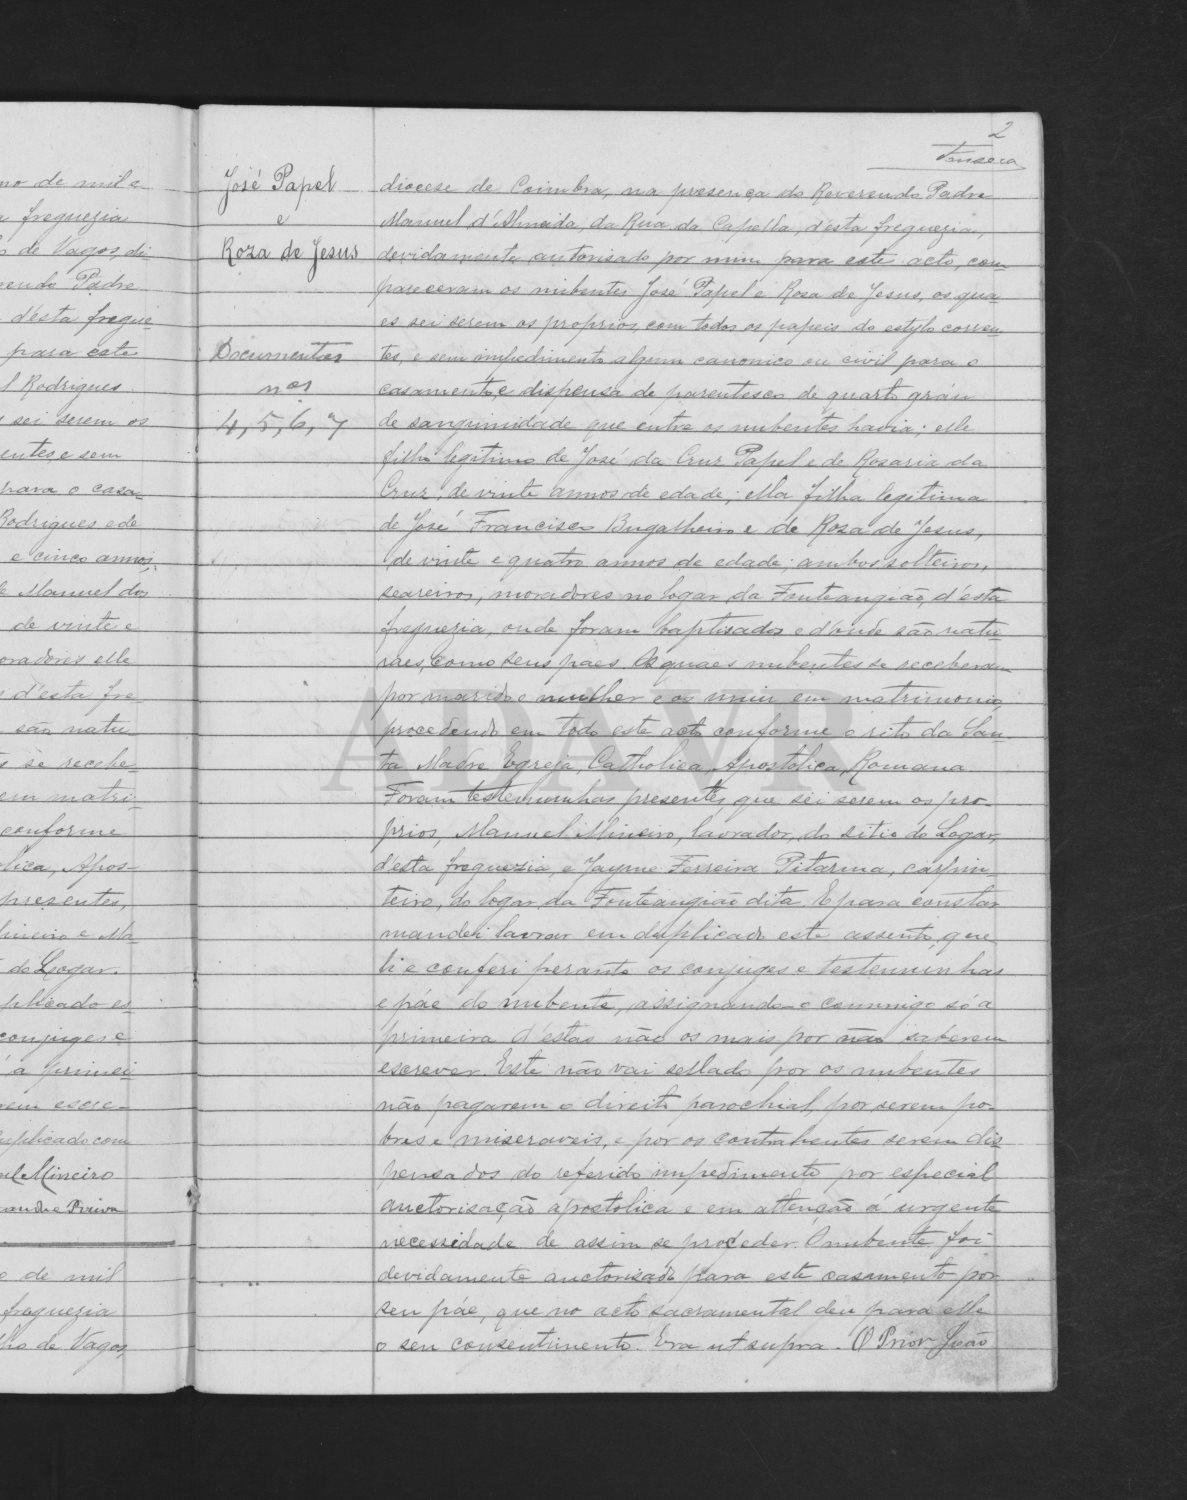 2
Fonseca
no de mil e
freguezia
de Vagos, di
rendo Padre
d'esta fregue-
para este
l Rodrigues
sei serem os
entes, e sem
para o casa-
Rodrigues e de
e cinco annos,
e Manuel dos
de vinte e
oradores elle
d'esta fre
são natu
se recebe-
em matri-
conforme
olica, Apos-
presentes,
ineiro e Ma
do Logar.
plicado es-
conjuges e
a primei-
rem escre-
duplicado com
el Mineiro
andre Paiva
o de mil
freguezia
lho de Vagos,
José Papel
e
Roza de Jesus
Documentos
nos
4, 5, 6, e 7
diocese de Coimbra, na presença do Reverendo Padre
Manuel d'Almeida, da Rua da Capella, d'esta freguezia,
devidamente autorisado por mim para este acto, com-
pareceram os nubentes José Papel e Rosa de Jesus, os qua-
es sei serem os proprios, com todos os papeis do estylo corren-
tes, e sem impedimento algum canonico ou civil para o
casamento, e dispensa de parentesco de quarto gráu
de sanguinidade que entre os nubentes havia; elle
filho legitimo de José da Cruz Papel e de Rosaria da
Cruz, de vinte annos de edade; ella filha legitima
de José Francisco Bugalheiro e de Roza de Jesus,
de vinte e quatro annos de edade; ambos solteiros,
seareiros, moradores no logar da Fonteangião, d'esta
freguezia, onde foram baptisados e d'onde são natu-
raes, como seus paes. Os quaes nubentes se receberam
por marido e mulher e os uniu em matrimonio,
procedendo em todo este acto conforme o rito da San-
ta Madre Egreja, Catholica, Apostolica, Romana.
Foram testemunhas presentes, que sei serem os pro-
prios, Manuel Mineiro, lavrador, do sitio do Logar,
d'esta freguezia, e Jayme Ferreira Pitarma, carpin-
teiro, do logar da Fonteangião dita. E para constar
mandei lavrar em duplicado este assento, que
li e conferi perante os conjuges e testemunhas
e páe do nubente, assignando-o commigo só a
primeira d'estas não os mais por não saberem
escrever. Este não vai sellado por os nubentes
não pagarem o direito parochial, por serem po-
bres e miseraveis, e por os contrahentes serem dis-
pensados do referido impedimento por especial
auctorisação apostolica e em attenção á urgente
necessidade de assim se proceder. O nubente foi
devidamente auctorisado para este casamento por
seu páe, que no acto sacramental deu para elle
o seu consentimento. Era ut supra. O Prior João
ADAVR